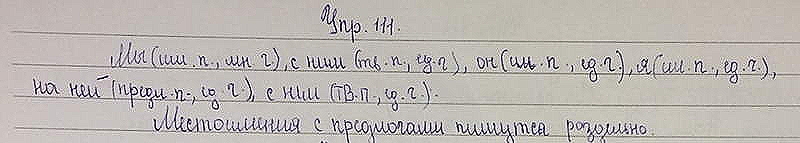 Упр. 111.
Мы (им. п., мн. ч), с ним (тв. п, ед. ч), он (им. п., ед. ч), я (им. п., ед. ч.),
на ней (предл. п., ед. ч.), с ним (ТВ. П., ед. ч.).
Местоимения с предлогами пишутся раздельно.